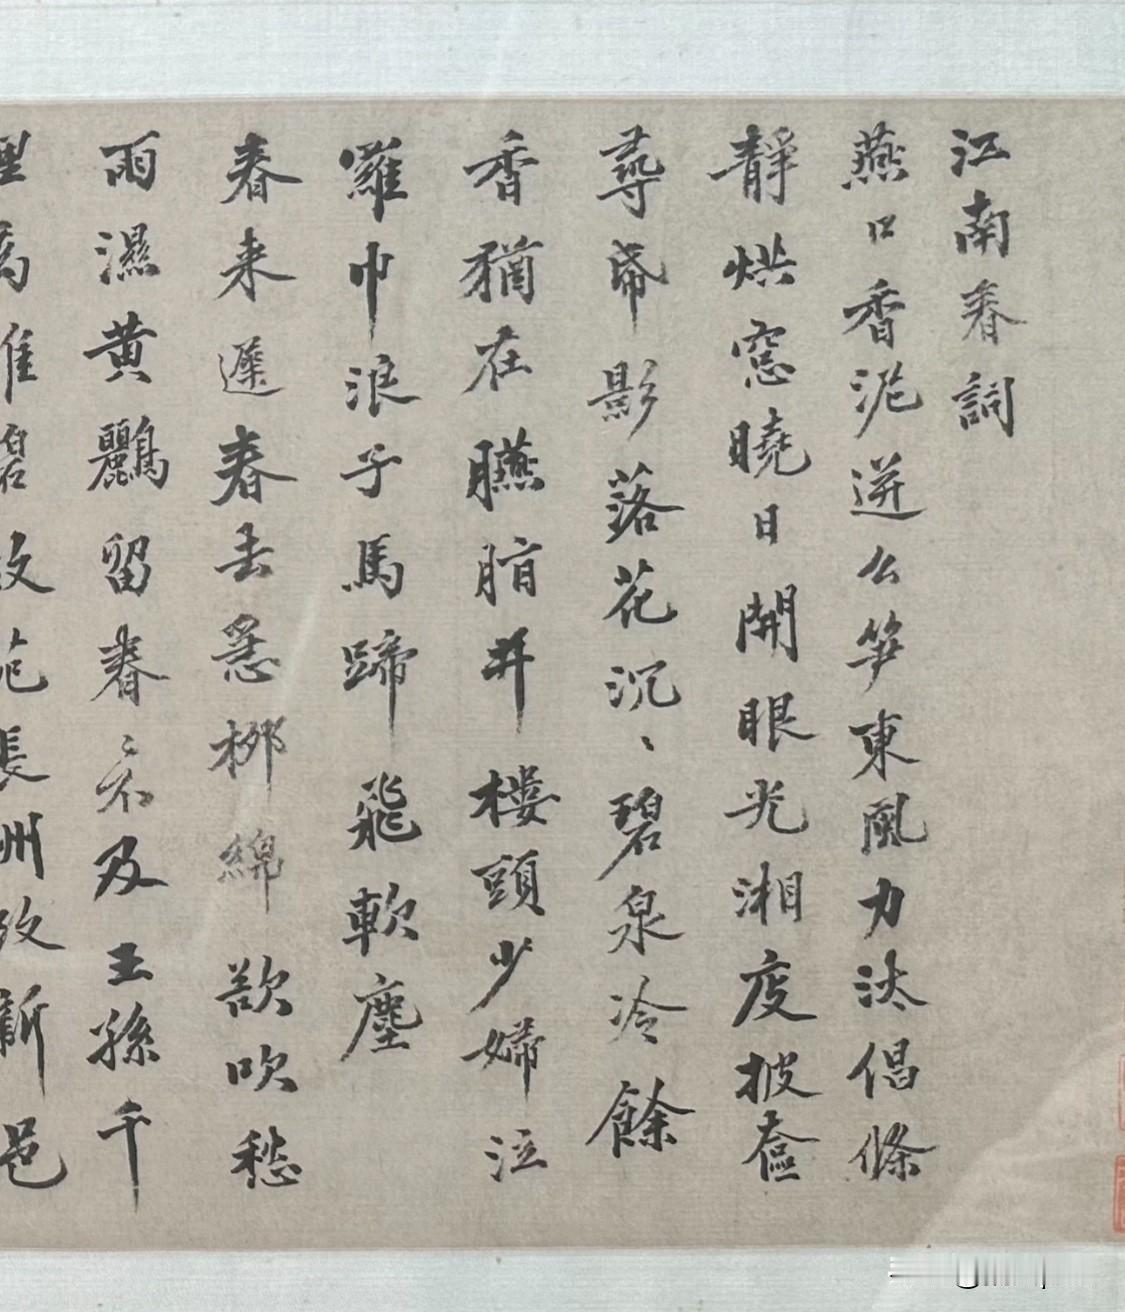 江南春詞
燕口香泥迸么笋東風力汰倡條
靜烘窓曉日開眼光湘度披奩
尋帋影落花沉〻碧泉冷餘
香猶在臙脂井樓頭少婦泣
羅巾浪子馬蹄飛軟塵
春来遲春去急柳綿欲吹愁
雨濕黄鸝留春〻不及王孫千
里爲誰碧故苑長州改新邑